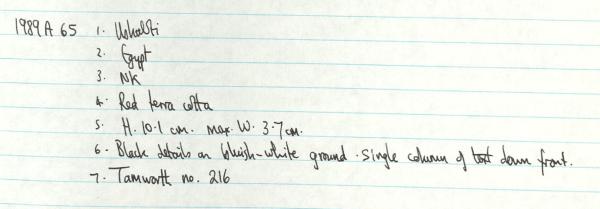 1989 A 65 1. Ushabti
2. Egypt
3. NK
4. Red terra cotta
5. H. 10.1 cm. max. W. 3.7 cm.
6. Black details on bluish-white ground. Single column of text down front.
7. Tamworth no. 216